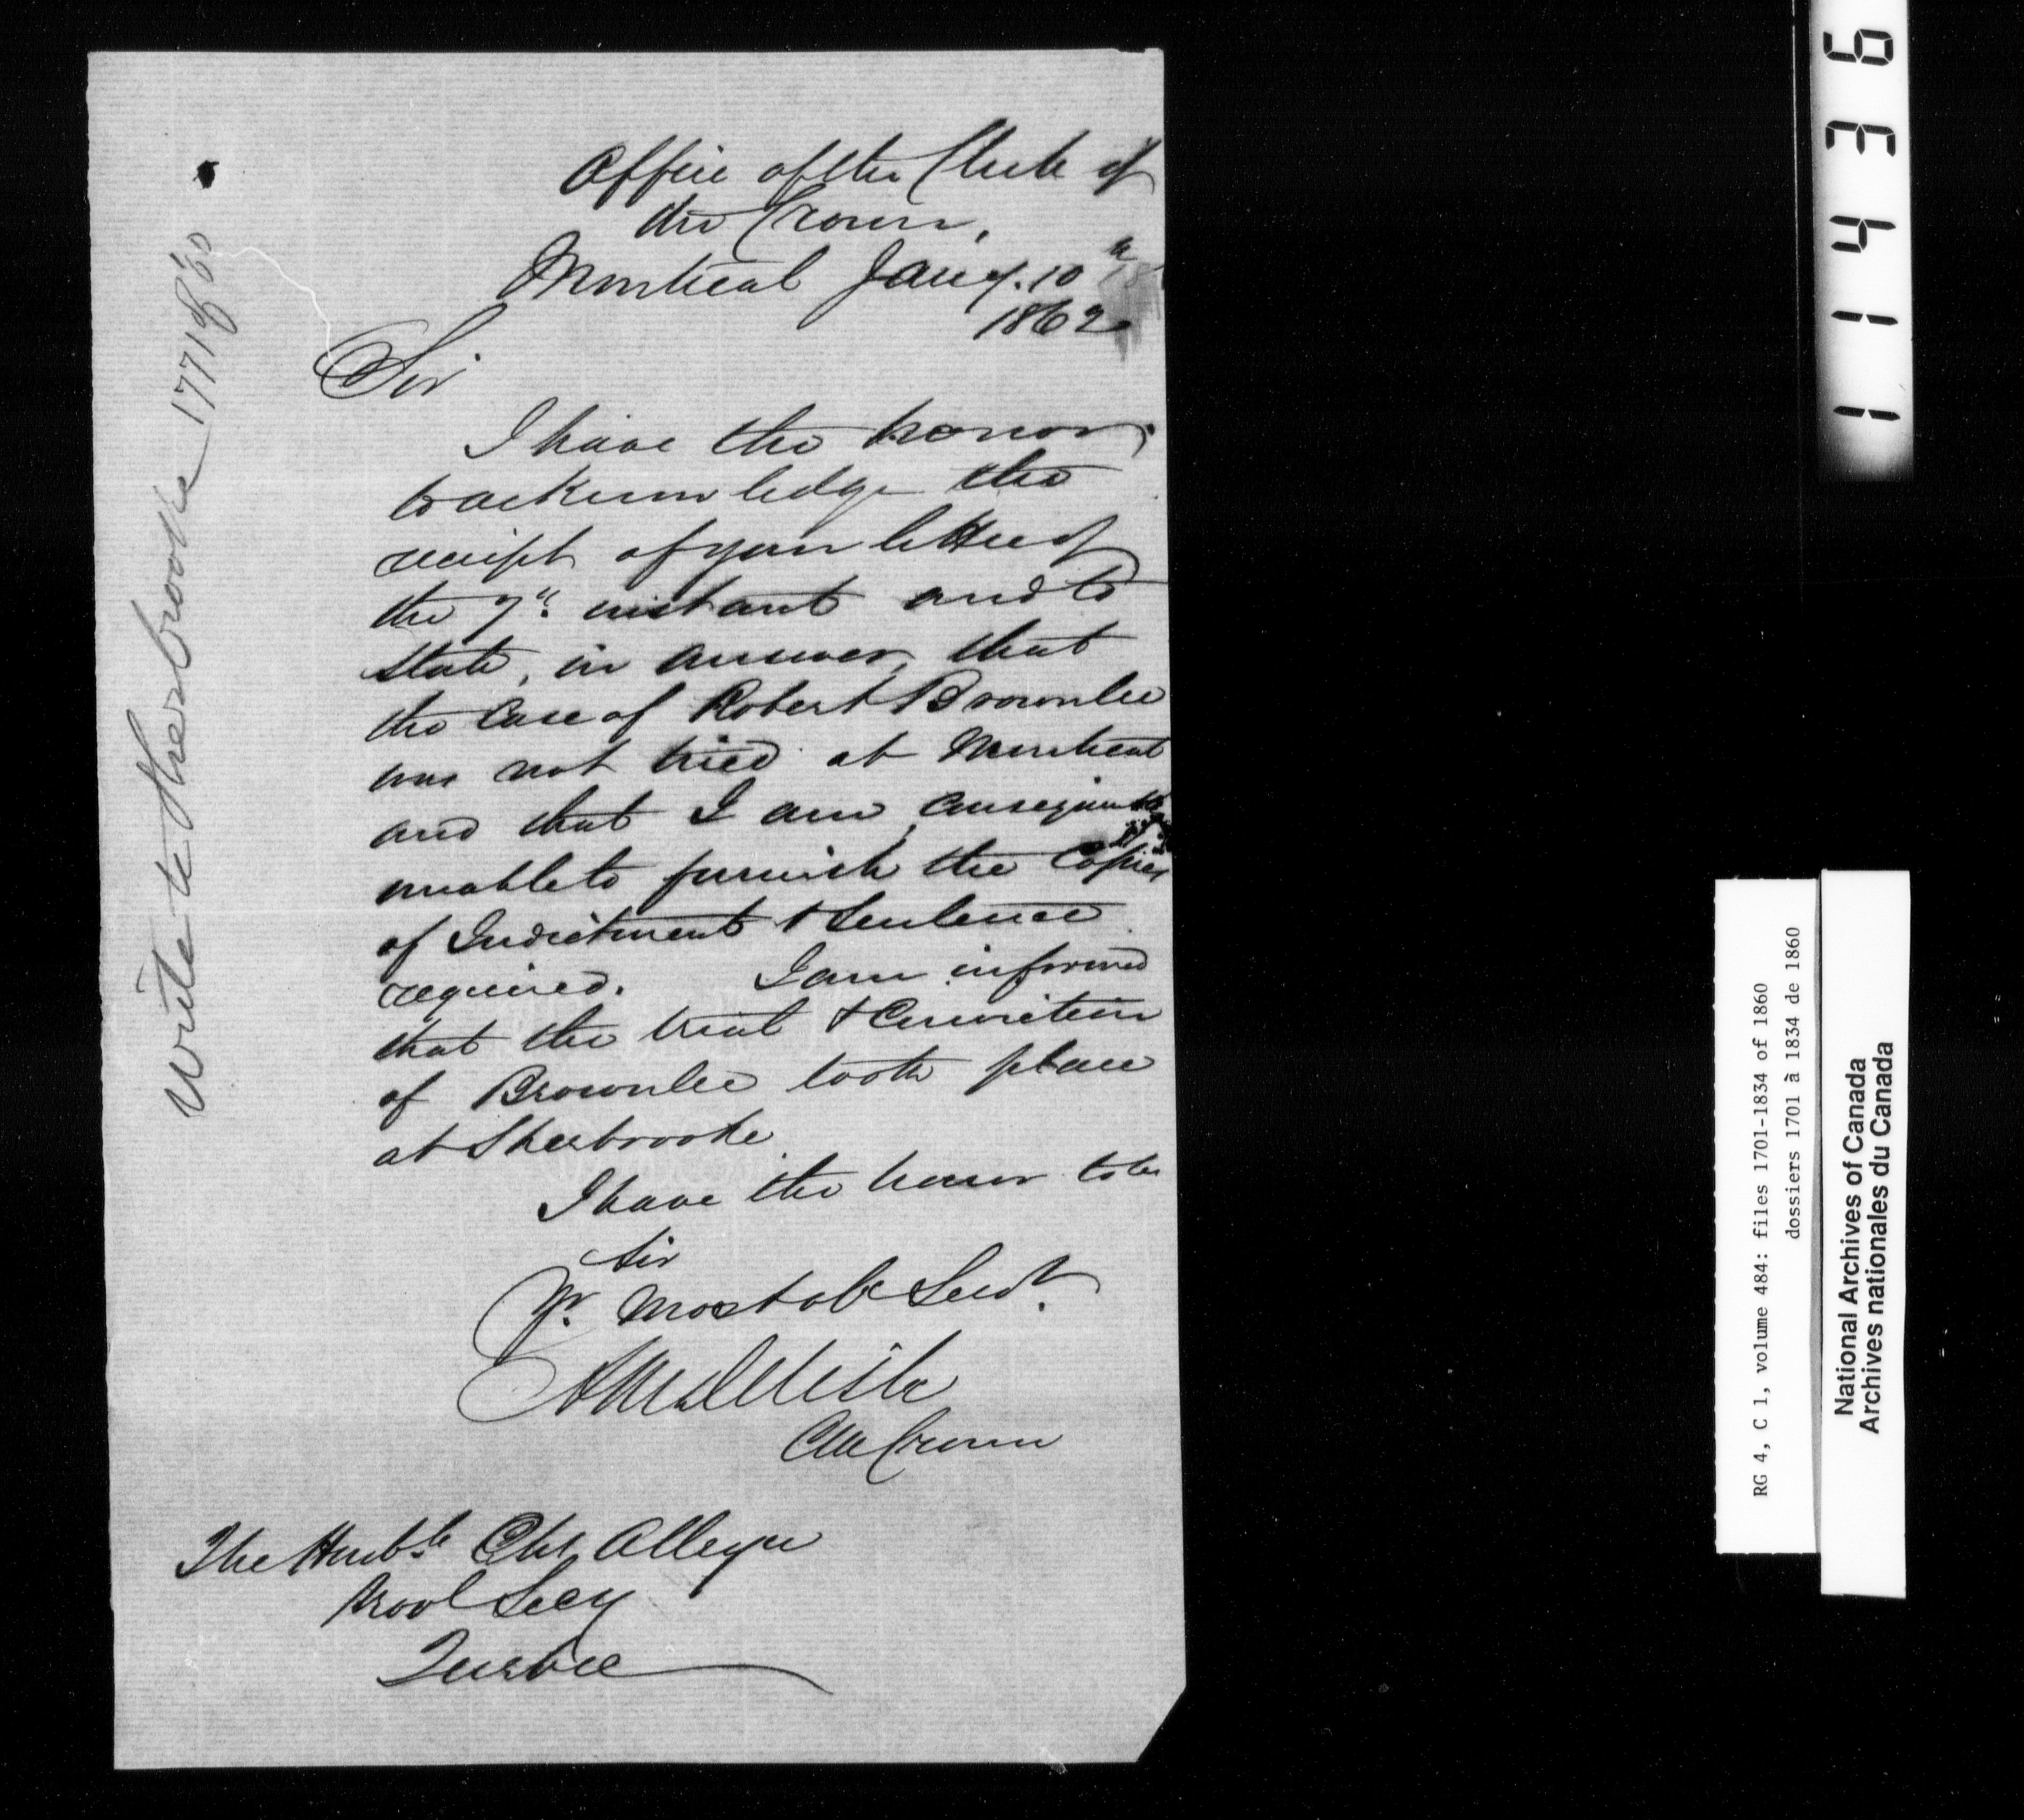 Office of the Clerk of
the Crown,
Montreal Jany. 10th
1862
Sir
I have the honor
to acknowledge the
receipt of your letter of
the 7th instant and to
state, in answer, that
the Case of Robert Brownlee
was not tried at Montreal
and that I am, consequently
unable to furnish the Copies
of Indictment & Sentence
required. I am informed
that the trial & Conviction
of Brownlee took place
at Sherbrooke
I have the honor to be
Sir
Yr. Most ob Servt.
Clk Crown
The Honble Chs Alleyn
Provl Secy
Quebec
Write to Sherbrooke 1771 of '60
11436
RG 4, C 1, volume 484: files 1701-1834 of 1860
dossiers 1701 à 1834 de 1860
National Archives of Canada
Archives nationales du Canada